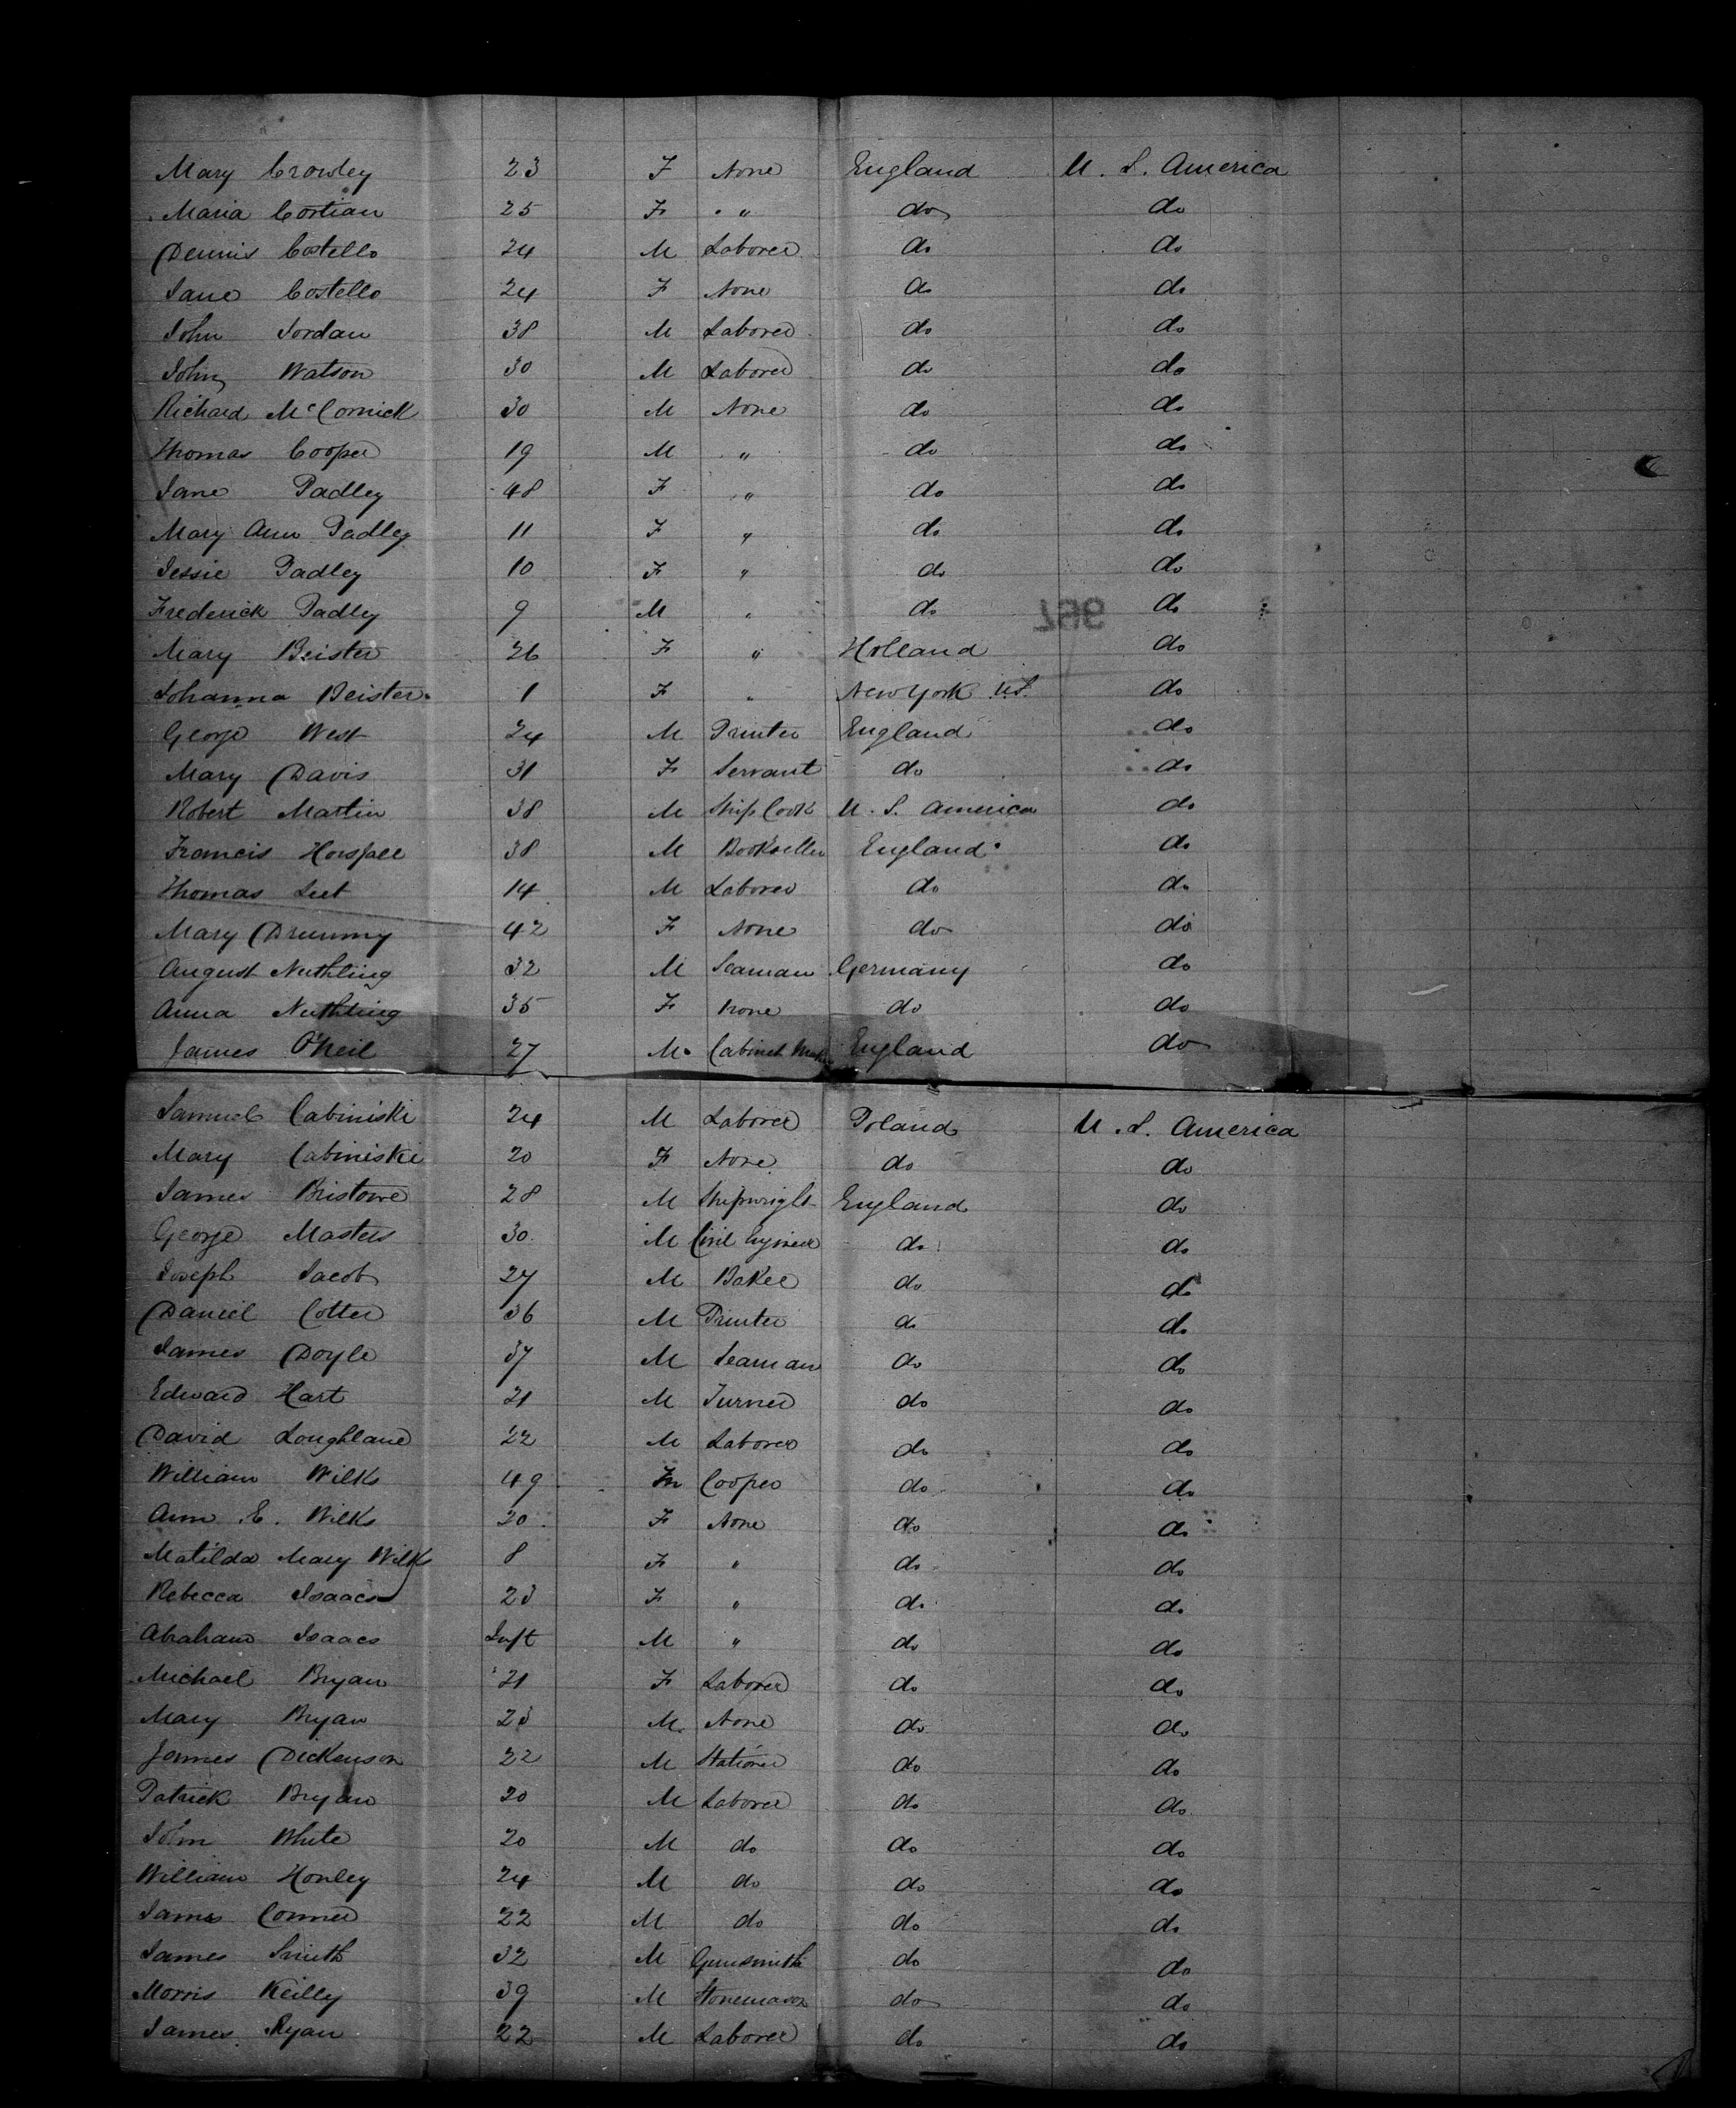 Mary Crowley 23 F None England U. S. America
Maria Costian 25 F " do do
Dennis Costello 24 M Laborer do do
Jane Costello 24 F None do do
John Jordan 38 M Laborer do do
John Watson 30 M Laborer do do
Richard McCornick 30 M None do do
Thomas Cooper 19 M " do do
Jane Padley 48 F " do do
Mary Ann Padley 11 F " do do
Jessie Padley 10 F " do do
Frederick Padley 9 M " do do
Mary Beister 26 F " Holland do
Johanna Beister 1 F " New York U.S. do
George West 24 M Printer England do
Mary Davis 31 F Servant do do
Robert Martin 38 M Ship Cook U. S. America do
Francis Horsfall 38 M Bookseller England do
Thomas 14 M Laborer do do
Mary Drummy 42 F None do do
August Nuthling 32 M Seaman Germany do
Anna Nuthling 35 F None do do
James O'Neil 27 M Cabinet Maker England do
Samuel Cabiniski 24 M Laborer Poland U. S. America
Mary Cabiniskie 20 F None do do
James Bristowe 28 M Shipwright England do
George Masters 30 M Civil Engineer do do
Joseph Jacob 27 M Baker do do
Daniel Cotter 36 M Printer do do
James Doyle 37 M Seaman do do
Edward Hart 21 M Turner do do
David Loughlane 22 M Laborer do do
William Wilks 49 m Cooper do do
Ann E. Wilks 20 F None do do
Matilda Mary Wilks 8 F " do do
Rebecca Isaacs 23 F " do do
Abraham Isaacs Inft M " do do
Michael Bryan 21 F Laborer do do
Mary Bryan 23 M None do do
James Dickenson 22 M Stationer do do
Patrick Bryan 20 M Laborer do do
John White 20 M do do do
William Honley 24 M do do do
James Conner 22 M do do do
James Smith 32 M Gunsmith do do
Morris Keilly 39 M Stonemason do do
James Ryan 22 M Laborer do do